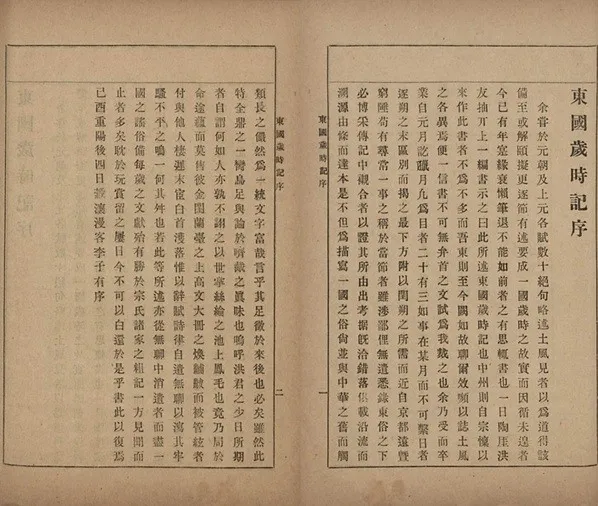 東國歲時記序
余嘗於元朝及上元各賦數十絕句略述土風見者以爲道得該
備至或解頤擬更逐節有述要成一國歲時之故實而因循未遑者
今已有年寔緣衰懶筆退不能如前者之有思輒書也一日陶厓洪
友抽丌上一編書示之曰此所述東國歲時記也中州則自宗懍以
來作此書者不爲不多而吾東則至今闕如故聊爾效嚬以誌土風
之各異焉便一信書不可無弁首之文試爲我戱之也余乃受而卒
業自元月訖臘月凡爲目者二十有三如事在某月而不可繫日者
逐朔之末區別而揭之最下方附以閏朔之所需而近自京都遠曁
窮陲苟有尋常一事之稱於當節者雖涉鄙俚無遺悉錄東俗之下
必博采傳記中觀合者以證其所由出考据旣洽錯落集載沿流而
溯源由條而達本是不但爲描寫一國之俗尙並與中華之舊而觸
東國歲時記序
一
東國歲時記序
二
類長之儼然爲一統文字富哉言乎其足徵於來後也必矣雖然此
特全鼎之一臠曷足與論於嚌胾之眞味也嗚呼洪君之少日所期
者自謂何如人亦孰不謂之以世掌絲綸之池上鳳毛也竟乃局於
命途蘊而莫售彼金閨蘭臺之上高文大冊之煥黼黻而被管絃者
付與他人棲遲末宦白首濩落惟以辭賦詩律自遣無聊以瀉其牢
騷不平之鳴一何其舛也若此等所述亦從無聊中消遣者而盡一
國之謠俗備每歲之文獻殆有勝於宗氏諸家之粗記一方見聞而
止者多矣耽於玩賞留之屢日今不可以白還於是乎書此以復焉
己酉重陽後四日漫客李子有序